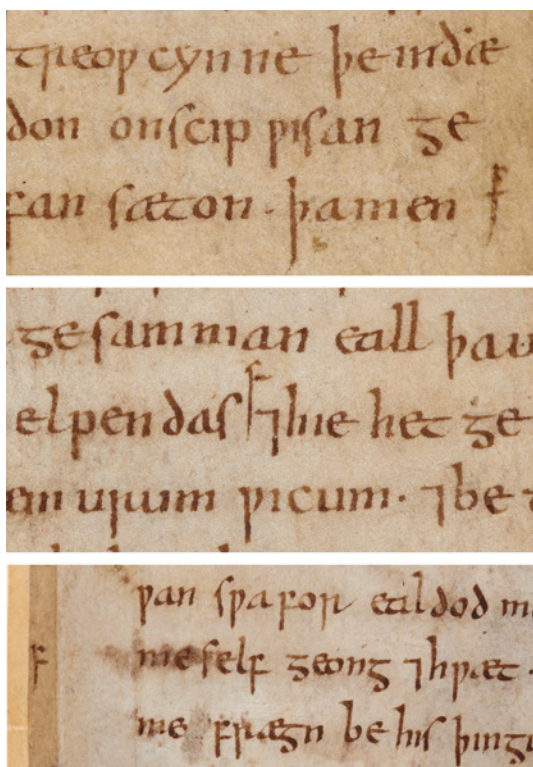 treoƿ cynne þe indæ
don onscip ƿisan ge
fan sæton · þa men f
gesamnian eall þa u
elpendas f ⁊ hie het ge
on urum ƿicum · ⁊ be t
ƿan sƿa for ealdod m
f me self geong ⁊ hƿæt ·
me frægn be his þingu